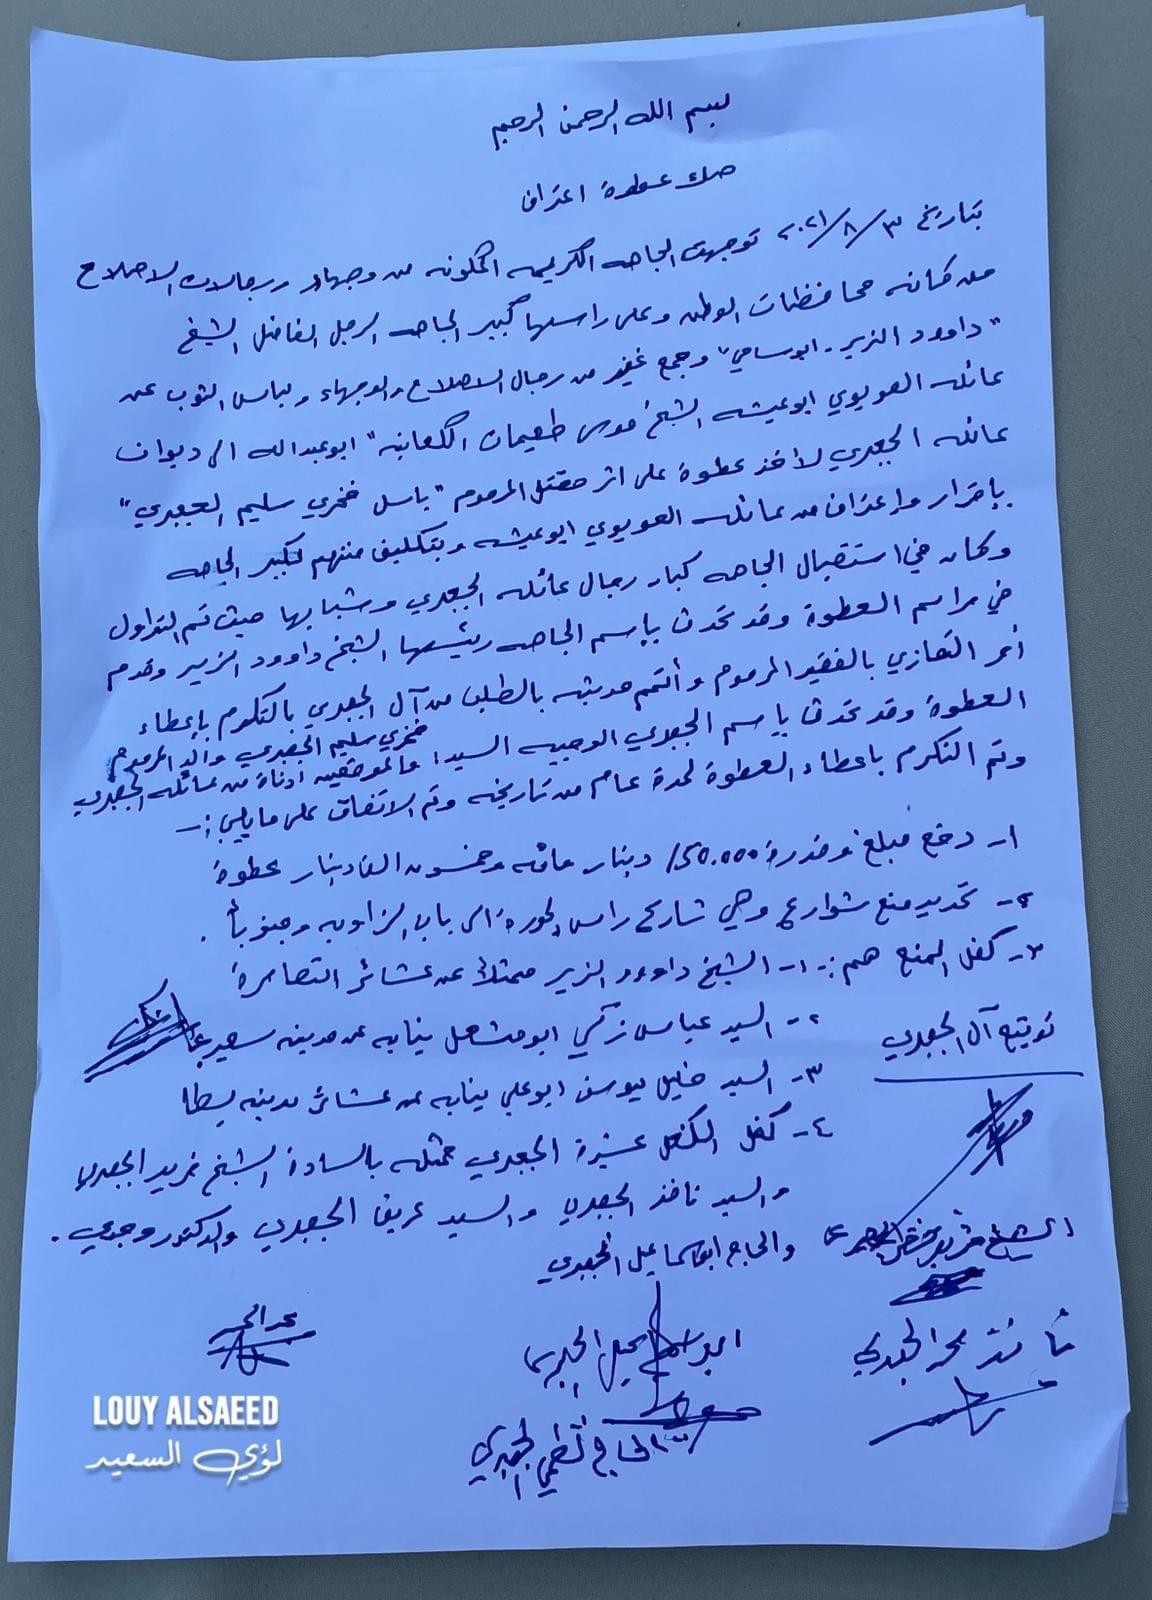 بسم الله الرحمن الرحيم
صك عطوة اعتراف
بتاريخ ٣/٨/٢٠٢١ توجهت الجاهه الكريمه المكونه من وجهاء ورجالات الاصلاح
من كافه محافظات الوطن وعلى راسها كبير الجاهه الرجل الفاضل الشيخ
"داوود الزير - ابو سامي" وجمع غفير من رجال الاصلاح والوجهاء ولباس الثوب عن
عائله العويوي ابوعيشه الشيخ موسى طعيمات الكعابنه "ابوعبدالله الى ديوان
عائله الجعبري لأخذ عطوة على اثر مقتل المرحوم "باسل فخري سليم الجعبري"
بإقرار وإعتراف من عائله العويوي ابوعيشه وبتكليف منهم لكبير الجاهه
وكان في استقبال الجاهه كبار رجال عائله الجعبري وشبابها حيث تم التداول
في مراسم العطوة وقد تحدث بإسم الجاهه رئيسها الشيخ داوود الزير وقدم
أحر التعازي بالفقيد المرحوم وأتم حديثه بالطلب من آل الجعبري بالتكرم بإعطاء
العطوة وقد تحدث بإسم الجعبري الوجيه السيد فخري سليم الجعبري والد المرحوم
والموقعين ادناه من عائله الجعبري
وتم التكرم باعطاء العطوة لمدة عام من تاريخه وتم الاتفاق على مايلي :-
١- دفع مبلغ وقدرة ١٥٠.٠٠٠ دينار مائه وخمسون الف دينار عطوة
٢- تحديد منع شوارع وهي شارع راس الجورة الى باب الزاويه وجنوباً .
٣- كفل المنع هم :- ١- الشيخ داوود الزير ممثلاً عن عشائر التعامرة
٢- السيد عباس زكي ابو مشعل نيابه عن مدينه سعير
٣- السيد خليل يوسف ابوعلي نيابه عن عشائر مدينه يطا
٤- كفل الكفل عشيرة الجعبري ممثله بالسادة الشيخ فريد الجعبري
والسيد نافذ الجعبري والسيد عريف الجعبري والدكتور وجدي .
والحاج ابواسماعيل الجعبري
توقيع آل الجعبري
الشيخ فريد خضر الجعبري
نافذ الجعبري
ابو اسماعيل الجعبري
الحاج الجعبري
LOUY ALSAEED
لؤي السعيد